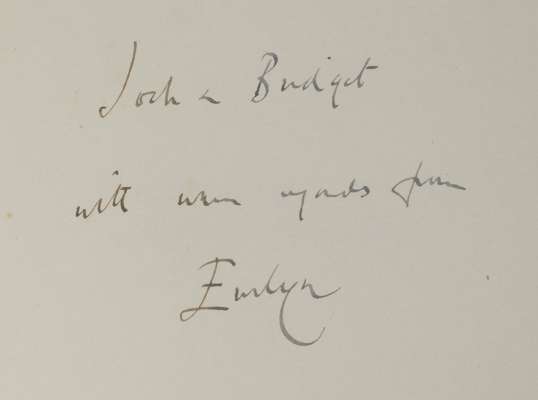 Jock & Bridget
with warm regards from
Evelyn